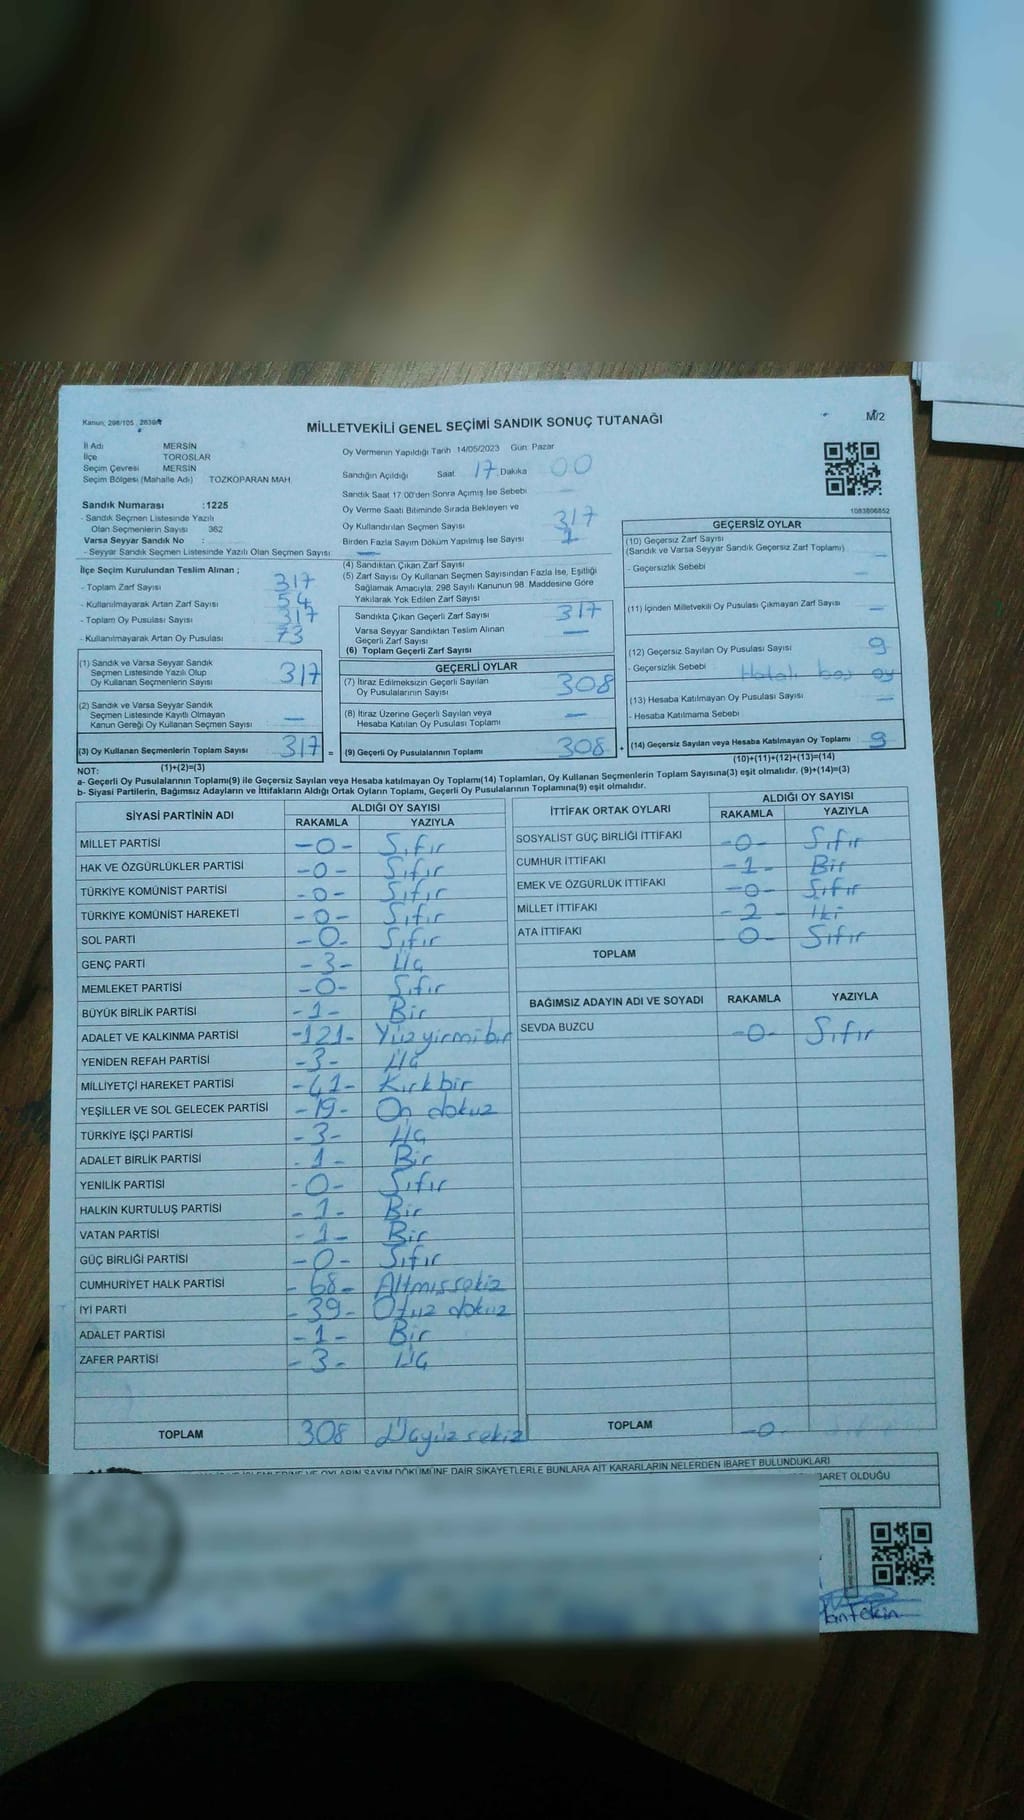 Kanun; 298/105, 2839/
MİLLETVEKİLİ GENEL SEÇİMİ SANDIK SONUÇ TUTANAĞI
M/2
İl Adı MERSİN
İlçe TOROSLAR
Seçim Çevresi MERSİN
Seçim Bölgesi (Mahalle Adı) TOZKOPARAN MAH.
Sandık Numarası :1225
- Sandık Seçmen Listesinde Yazılı
Olan Seçmenlerin Sayısı 362
Varsa Seyyar Sandık No :
- Seyyar Sandık Seçmen Listesinde Yazılı Olan Seçmen Sayısı: —
Oy Vermenin Yapıldığı Tarih 14/05/2023 Gün: Pazar
Sandığın Açıldığı Saat 17 Dakika 00
Sandık Saat 17:00'den Sonra Açımış İse Sebebi —
Oy Verme Saati Bitiminde Sırada Bekleyen ve
Oy Kullandırılan Seçmen Sayısı 317
Birden Fazla Sayım Döküm Yapılmış İse Sayısı 1
1083806852
İlçe Seçim Kurulundan Teslim Alınan ;
- Toplam Zarf Sayısı 317
- Kullanılmayarak Artan Zarf Sayısı 54
- Toplam Oy Pusulası Sayısı 317
- Kullanılmayarak Artan Oy Pusulası 73
(1) Sandık ve Varsa Seyyar Sandık
Seçmen Listesinde Yazılı Olup
Oy Kullanan Seçmenlerin Sayısı 317
(2) Sandık ve Varsa Seyyar Sandık
Seçmen Listesinde Kayıtlı Olmayan
Kanun Gereği Oy Kullanan Seçmen Sayısı —
(3) Oy Kullanan Seçmenlerin Toplam Sayısı 317 =
(1)+(2)=(3)
(4) Sandıktan Çıkan Zarf Sayısı
(5) Zarf Sayısı Oy Kullanan Seçmen Sayısından Fazla İse, Eşitliği
Sağlamak Amacıyla, 298 Sayılı Kanunun 98. Maddesine Göre
Yakılarak Yok Edilen Zarf Sayısı
Sandıkta Çıkan Geçerli Zarf Sayısı 317
Varsa Seyyar Sandıktan Teslim Alınan
Geçerli Zarf Sayısı —
(6) Toplam Geçerli Zarf Sayısı
GEÇERLİ OYLAR
(7) İtiraz Edilmeksizin Geçerli Sayılan
Oy Pusulalarının Sayısı 308
(8) İtiraz Üzerine Geçerli Sayılan veya
Hesaba Katılan Oy Pusulası Toplamı —
(9) Geçerli Oy Pusulalarının Toplamı 308 +
GEÇERSİZ OYLAR
(10) Geçersiz Zarf Sayısı
(Sandık ve Varsa Seyyar Sandık Geçersiz Zarf Toplamı) —
- Geçersizlik Sebebi —
(11) İçinden Milletvekili Oy Pusulası Çıkmayan Zarf Sayısı —
(12) Geçersiz Sayılan Oy Pusulası Sayısı 9
- Geçersizlik Sebebi Hatalı boş oy
(13) Hesaba Katılmayan Oy Pusulası Sayısı —
- Hesaba Katılmama Sebebi
(14) Geçersiz Sayılan veya Hesaba Katılmayan Oy Toplamı 9
(10)+(11)+(12)+(13)=(14)
NOT:
a- Geçerli Oy Pusulalarının Toplamı(9) ile Geçersiz Sayılan veya Hesaba katılmayan Oy Toplamı(14) Toplamları, Oy Kullanan Seçmenlerin Toplam Sayısına(3) eşit olmalıdır. (9)+(14)=(3)
b- Siyasi Partilerin, Bağımsız Adayların ve İttifakların Aldığı Ortak Oyların Toplamı, Geçerli Oy Pusulalarının Toplamına(9) eşit olmalıdır.
SİYASİ PARTİNİN ADI ALDIĞI OY SAYISI
RAKAMLA YAZIYLA
MİLLET PARTİSİ -0- Sıfır
HAK VE ÖZGÜRLÜKLER PARTİSİ -0- Sıfır
TÜRKİYE KOMÜNİST PARTİSİ -0- Sıfır
TÜRKİYE KOMÜNİST HAREKETİ -0- Sıfır
SOL PARTİ -0- Sıfır
GENÇ PARTİ -3- Üç
MEMLEKET PARTİSİ -0- Sıfır
BÜYÜK BİRLİK PARTİSİ -1- Bir
ADALET VE KALKINMA PARTİSİ -121- Yüz yirmi bir
YENİDEN REFAH PARTİSİ -3- Üç
MİLLİYETÇİ HAREKET PARTİSİ -41- Kırk bir
YEŞİLLER VE SOL GELECEK PARTİSİ -19- On dokuz
TÜRKİYE İŞÇİ PARTİSİ -3- Üç
ADALET BİRLİK PARTİSİ -1- Bir
YENİLİK PARTİSİ -0- Sıfır
HALKIN KURTULUŞ PARTİSİ -1- Bir
VATAN PARTİSİ -1- Bir
GÜÇ BİRLİĞİ PARTİSİ -0- Sıfır
CUMHURİYET HALK PARTİSİ -68- Altmışsekiz
İYİ PARTİ -39- Otuz dokuz
ADALET PARTİSİ -1- Bir
ZAFER PARTİSİ -3- Üç
TOPLAM 308 Üçyüz sekiz
İTTİFAK ORTAK OYLARI ALDIĞI OY SAYISI
RAKAMLA YAZIYLA
SOSYALİST GÜÇ BİRLİĞİ İTTİFAKI -0- Sıfır
CUMHUR İTTİFAKI -1- Bir
EMEK VE ÖZGÜRLÜK İTTİFAKI -0- Sıfır
MİLLET İTTİFAKI -2- İki
ATA İTTİFAKI -0- Sıfır
TOPLAM
BAĞIMSIZ ADAYIN ADI VE SOYADI RAKAMLA YAZIYLA
SEVDA BUZCU -0- Sıfır
TOPLAM -0-
VE OYLARIN SAYIM DÖKÜMÜNE DAİR ŞİKAYETLERLE BUNLARA AİT KARARLARIN NELERDEN İBARET BULUNDUKLARI
BARET OLDUĞU